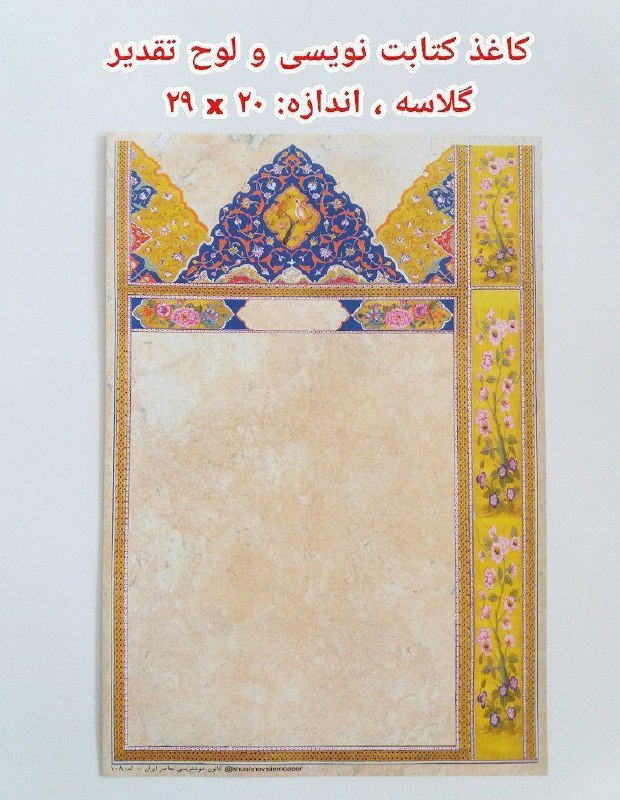 کاغذ کتابت نویسی و لوح تقدیر
گلاسه ، اندازه: ۲۰ x ۲۹
کانون خوشنویسی معاصر ایران - کد: ۱۰۸